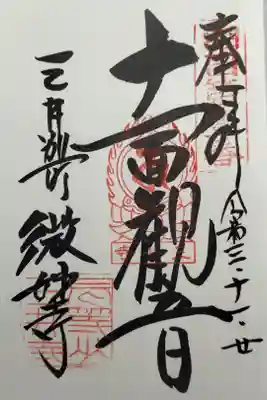 奉拜 令和三・十一・廿
十一面觀音
三井別所 微妙寺